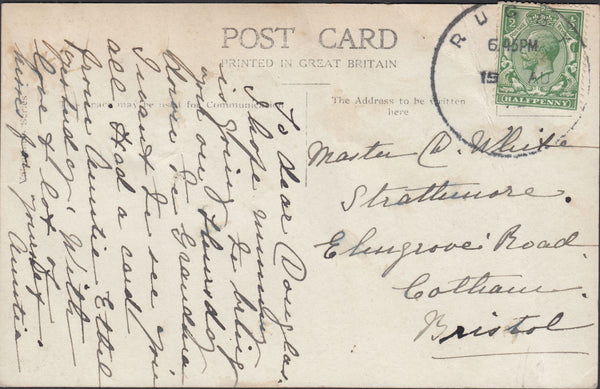 POST CARD
PRINTED IN GREAT BRITAIN
space may be used for Communication
The Address to be written
here
RUG
6.45PM
19 AU
HALFPENNY
To dear Douglas.
I hope mummy
is going to bring
you on Thursday
Down to Grandma
I want to see you
all. Had a card
from Auntie Ethel
yesterday. With
love & lots of
kisses from
Auntie
Master D. White
Strathmore.
Elmgrove Road
Cotham.
Bristol